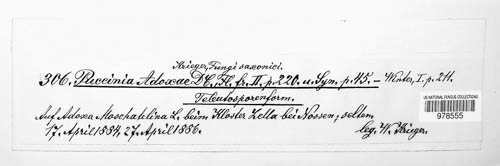 Krieger, Fungi saxonici.
306. Puccinia Adoxae DC. Fl. fr. II. p. 220. u. Syn. p. 45. – Winter, I. p. 211.
Teleutosporenform.
Auf Adoxa Moschatellina L. beim Kloster Zella bei Nossen, selten.
17. April 1884, 27. April 1886.
leg. W. Krieger.
US NATIONAL FUNGUS COLLECTIONS
978555